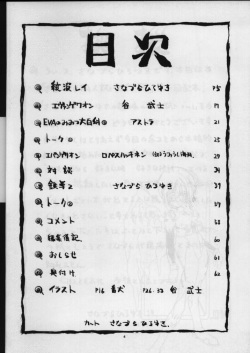 目次
綾波レイ さなづらひろゆき 15
エヴァンゲリオン 台 武士 17
EVAのみみつ大百科 アストラ 21
トーク 25
エヴァンゲリオン 29
対談 34
鉄拳2 さなづらひろゆき 39
トーク 37
コメント 58
編集後記 60
おしらせ 61
奥付け 62
イラスト P16 P26・32 台 武士
カット さなづらひろゆき.